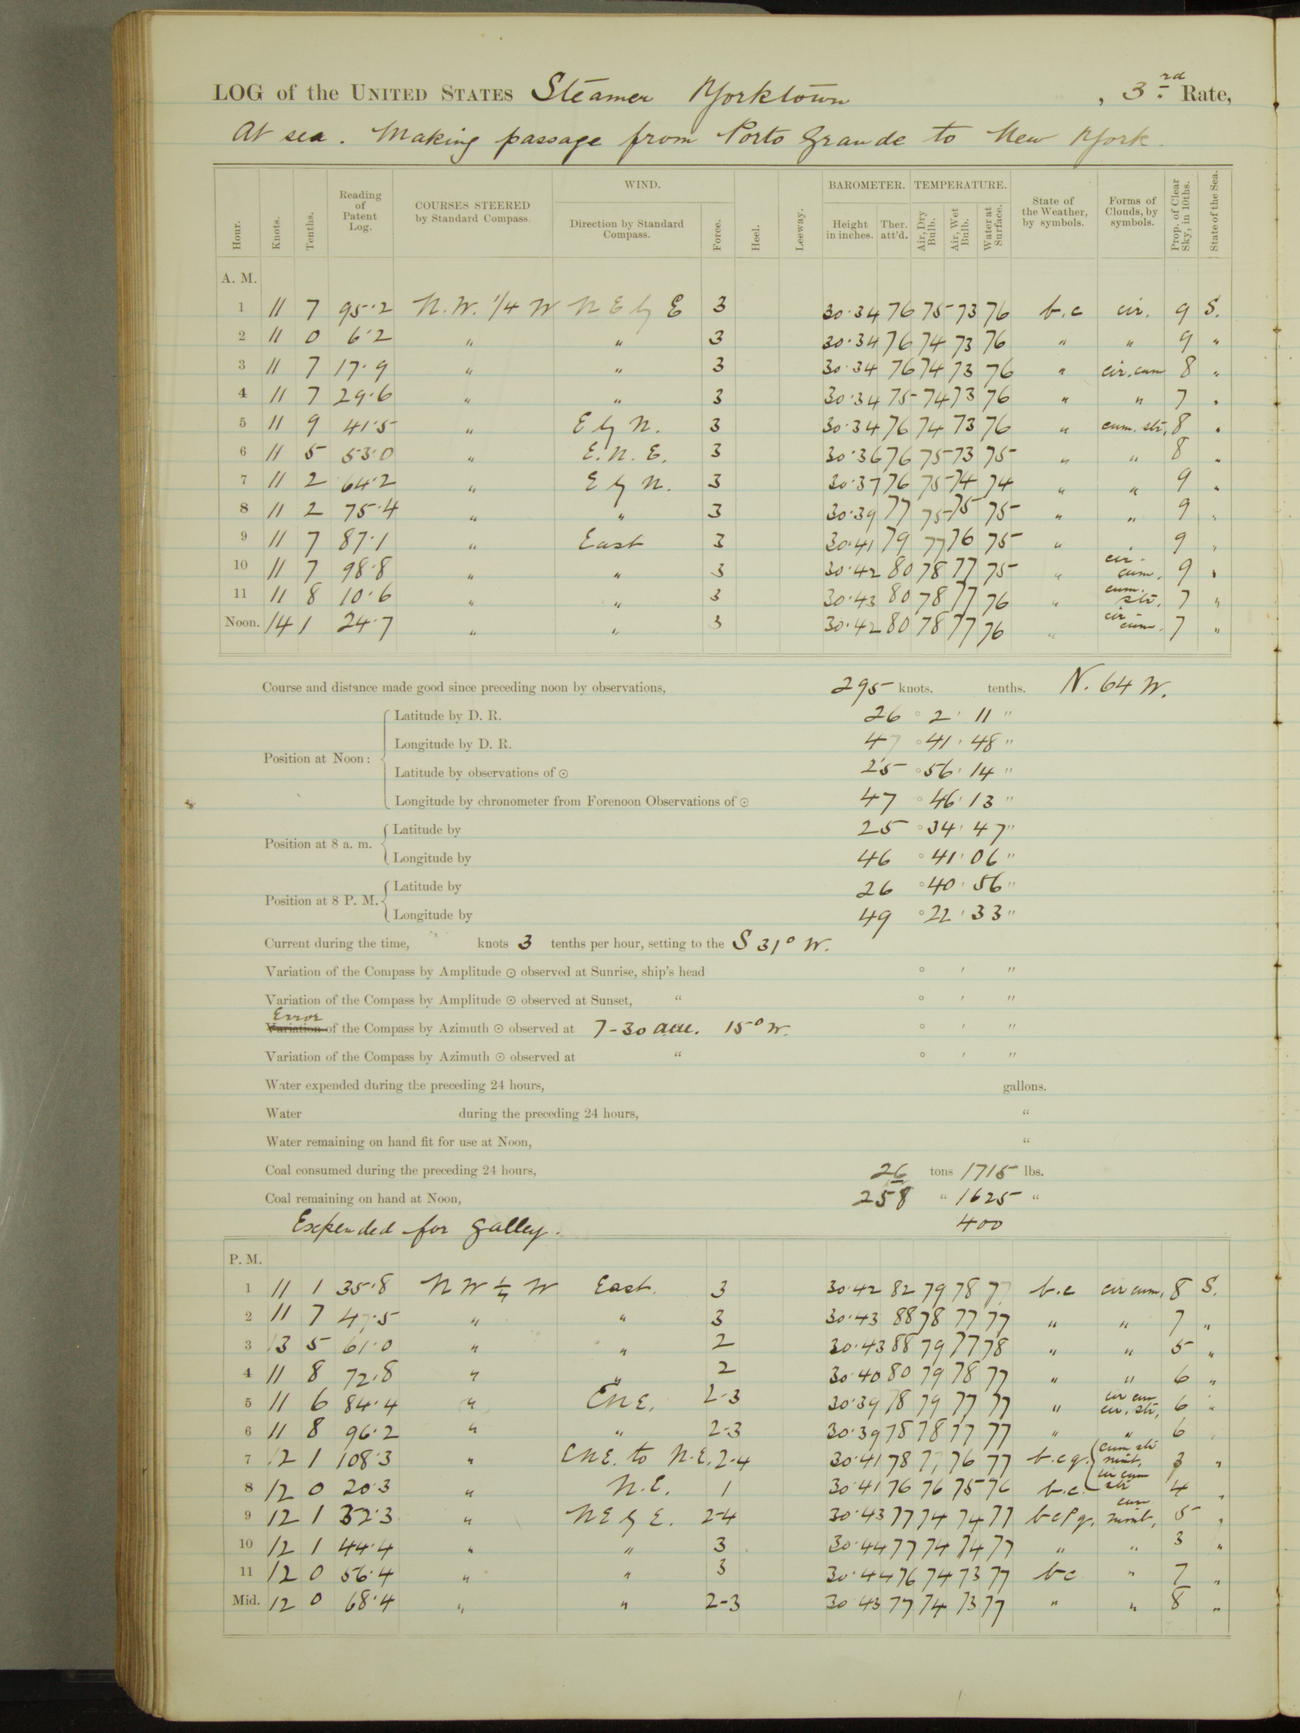 LOG of the UNITED STATES Steamer Yorktown, 3rd Rate,
At sea. Making passage from Porto Grande to New York.
Hour. Knots. Tenths. Reading of Patent Log. COURSES STEERED by Standard Compass. WIND. Direction by Standard Compass. Force. Heel. Leeway. BAROMETER. Height in inches. Ther. att'd. TEMPERATURE. Air, Dry Bulb. Air, Wet Bulb. Water at Surface. State of the Weather, by symbols. Forms of Clouds, by symbols. Prop. of Clear Sky, in 10ths. State of the Sea.
A. M.
1 11 7 95.2 N.W. 1/4 W N E by E 3 30.34 76 75 73 76 b.c cir. 9 S.
2 11 0 6.2 " " 3 30.34 76 74 73 76 " " 9 "
3 11 7 17.9 " " 3 30.34 76 74 73 76 " cir.cum 8 "
4 11 7 29.6 " " 3 30.34 75 74 73 76 " " 7 "
5 11 9 41.5 " E by N. 3 30.34 76 74 73 76 " cum. str. 8 "
6 11 5 53.0 " E.N.E. 3 30.36 76 75 73 75 " " 8 "
7 11 2 64.2 " E by N. 3 30.37 76 75 74 74 " " 9 "
8 11 2 75.4 " " 3 30.39 77 75 75 75 " " 9 "
9 11 7 87.1 " East 3 30.41 79 77 76 75 " " 9 "
10 11 7 98.8 " " 3 30.42 80 78 77 75 " cir. cum. 9 "
11 11 8 10.6 " " 3 30.43 80 78 77 76 " cum. str. 7 "
Noon. 14 1 24.7 " " 3 30.42 80 78 77 76 " cir cum. 7 "
Course and distance made good since preceding noon by observations, 295 knots. tenths. N. 64 W.
Position at Noon: Latitude by D. R. 26 ° 2 ' 11 "
Longitude by D. R. 47 ° 41 ' 48 "
Latitude by observations of ☉ 25 ° 56 ' 14 "
Longitude by chronometer from Forenoon Observations of ☉ 47 ° 46 ' 13 "
Position at 8 a. m. Latitude by 25 ° 34 ' 47 "
Longitude by 46 ° 41 ' 06 "
Position at 8 P. M. Latitude by 26 ° 40 ' 56 "
Longitude by 49 ° 22 ' 33 "
Current during the time, knots 3 tenths per hour, setting to the S 31° W.
Variation of the Compass by Amplitude ☉ observed at Sunrise, ship's head ° ' "
Variation of the Compass by Amplitude ☉ observed at Sunset, " ° ' "
Error
Variation of the Compass by Azimuth ☉ observed at 7-30 a.m. 15° W. ° ' "
Variation of the Compass by Azimuth ☉ observed at " ° ' "
Water expended during the preceding 24 hours, gallons.
Water during the preceding 24 hours, "
Water remaining on hand fit for use at Noon, "
Coal consumed during the preceding 24 hours, 26 tons 1715 lbs.
Coal remaining on hand at Noon, 258 " 1625 "
Expended for galley. 400
P. M.
1 11 1 35.8 N W 1/4 W East. 3 30.42 82 79 78 77 b.c cir cum, 8 S.
2 11 7 47.5 " " 3 30.43 88 78 77 77 " " 7 "
3 13 5 61.0 " " 2 30.43 88 79 77 78 " " 5 "
4 11 8 72.8 " " 2 30.40 80 79 78 77 " " 6 "
5 11 6 84.4 " ENE. 2-3 30.39 78 79 77 77 " cir cum cir. str, 6 "
6 11 8 96.2 " " 2-3 30.39 78 78 77 77 " " 6 "
7 12 1 108.3 " ENE. to N.E. 2-4 30.41 78 77 76 77 b.c q. cum str nimb. 3 "
8 12 0 20.3 " N.E. 1 30.41 76 76 75 76 b.c. cir cum str 4 "
9 12 1 32.3 " NE by E. 2-4 30.43 77 74 74 77 bcpq, cum nimb, 5 "
10 12 1 44.4 " " 3 30.44 77 74 74 77 " " 3 "
11 12 0 56.4 " " 3 30.44 76 74 73 77 bc " 7 "
Mid. 12 0 68.4 " " 2-3 30.43 77 74 73 77 " " 8 "